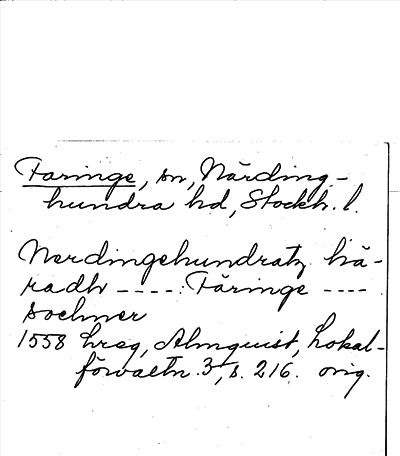 Faringe, sn, Närding-
hundra hd, Stockh. l.
Nerdingehundratz hä-
radh ---- : Färinge ----
sochner
1558 Lrsg, Almquist, Lokal-
förvaltn. 3, s. 216. orig.